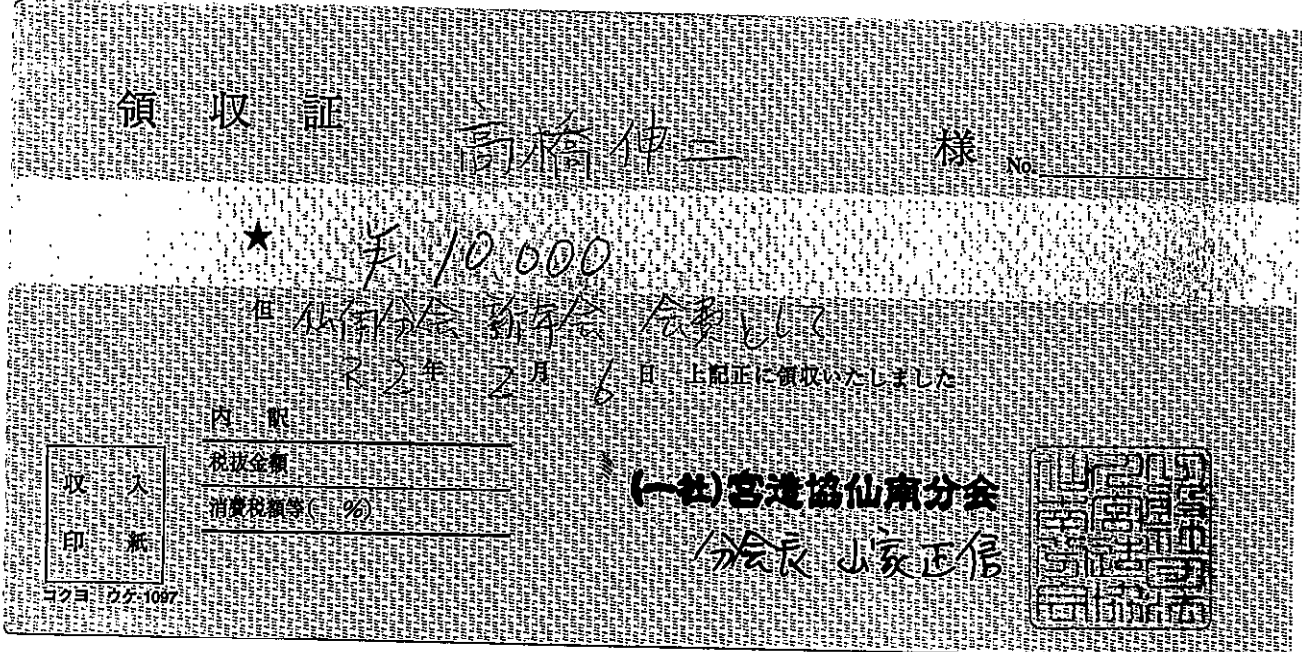 領収証
高橋伸二 様 No.
★ ¥10,000
但 仙南分会 新年会 会費として
R2年 2月 6日 上記正に領収いたしました
内訳
税抜金額
消費税額等( %)
収入
印紙
コクヨ ウケ-1097
(一社)宮造協仙南分会
分会長 山家正信